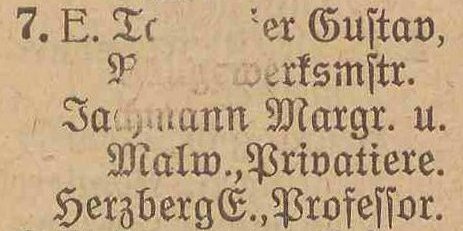 7. E. Guſtav,
Jachmann Margr. u.
Malw., Privatiere.
Herzberg E., Profeſſor.